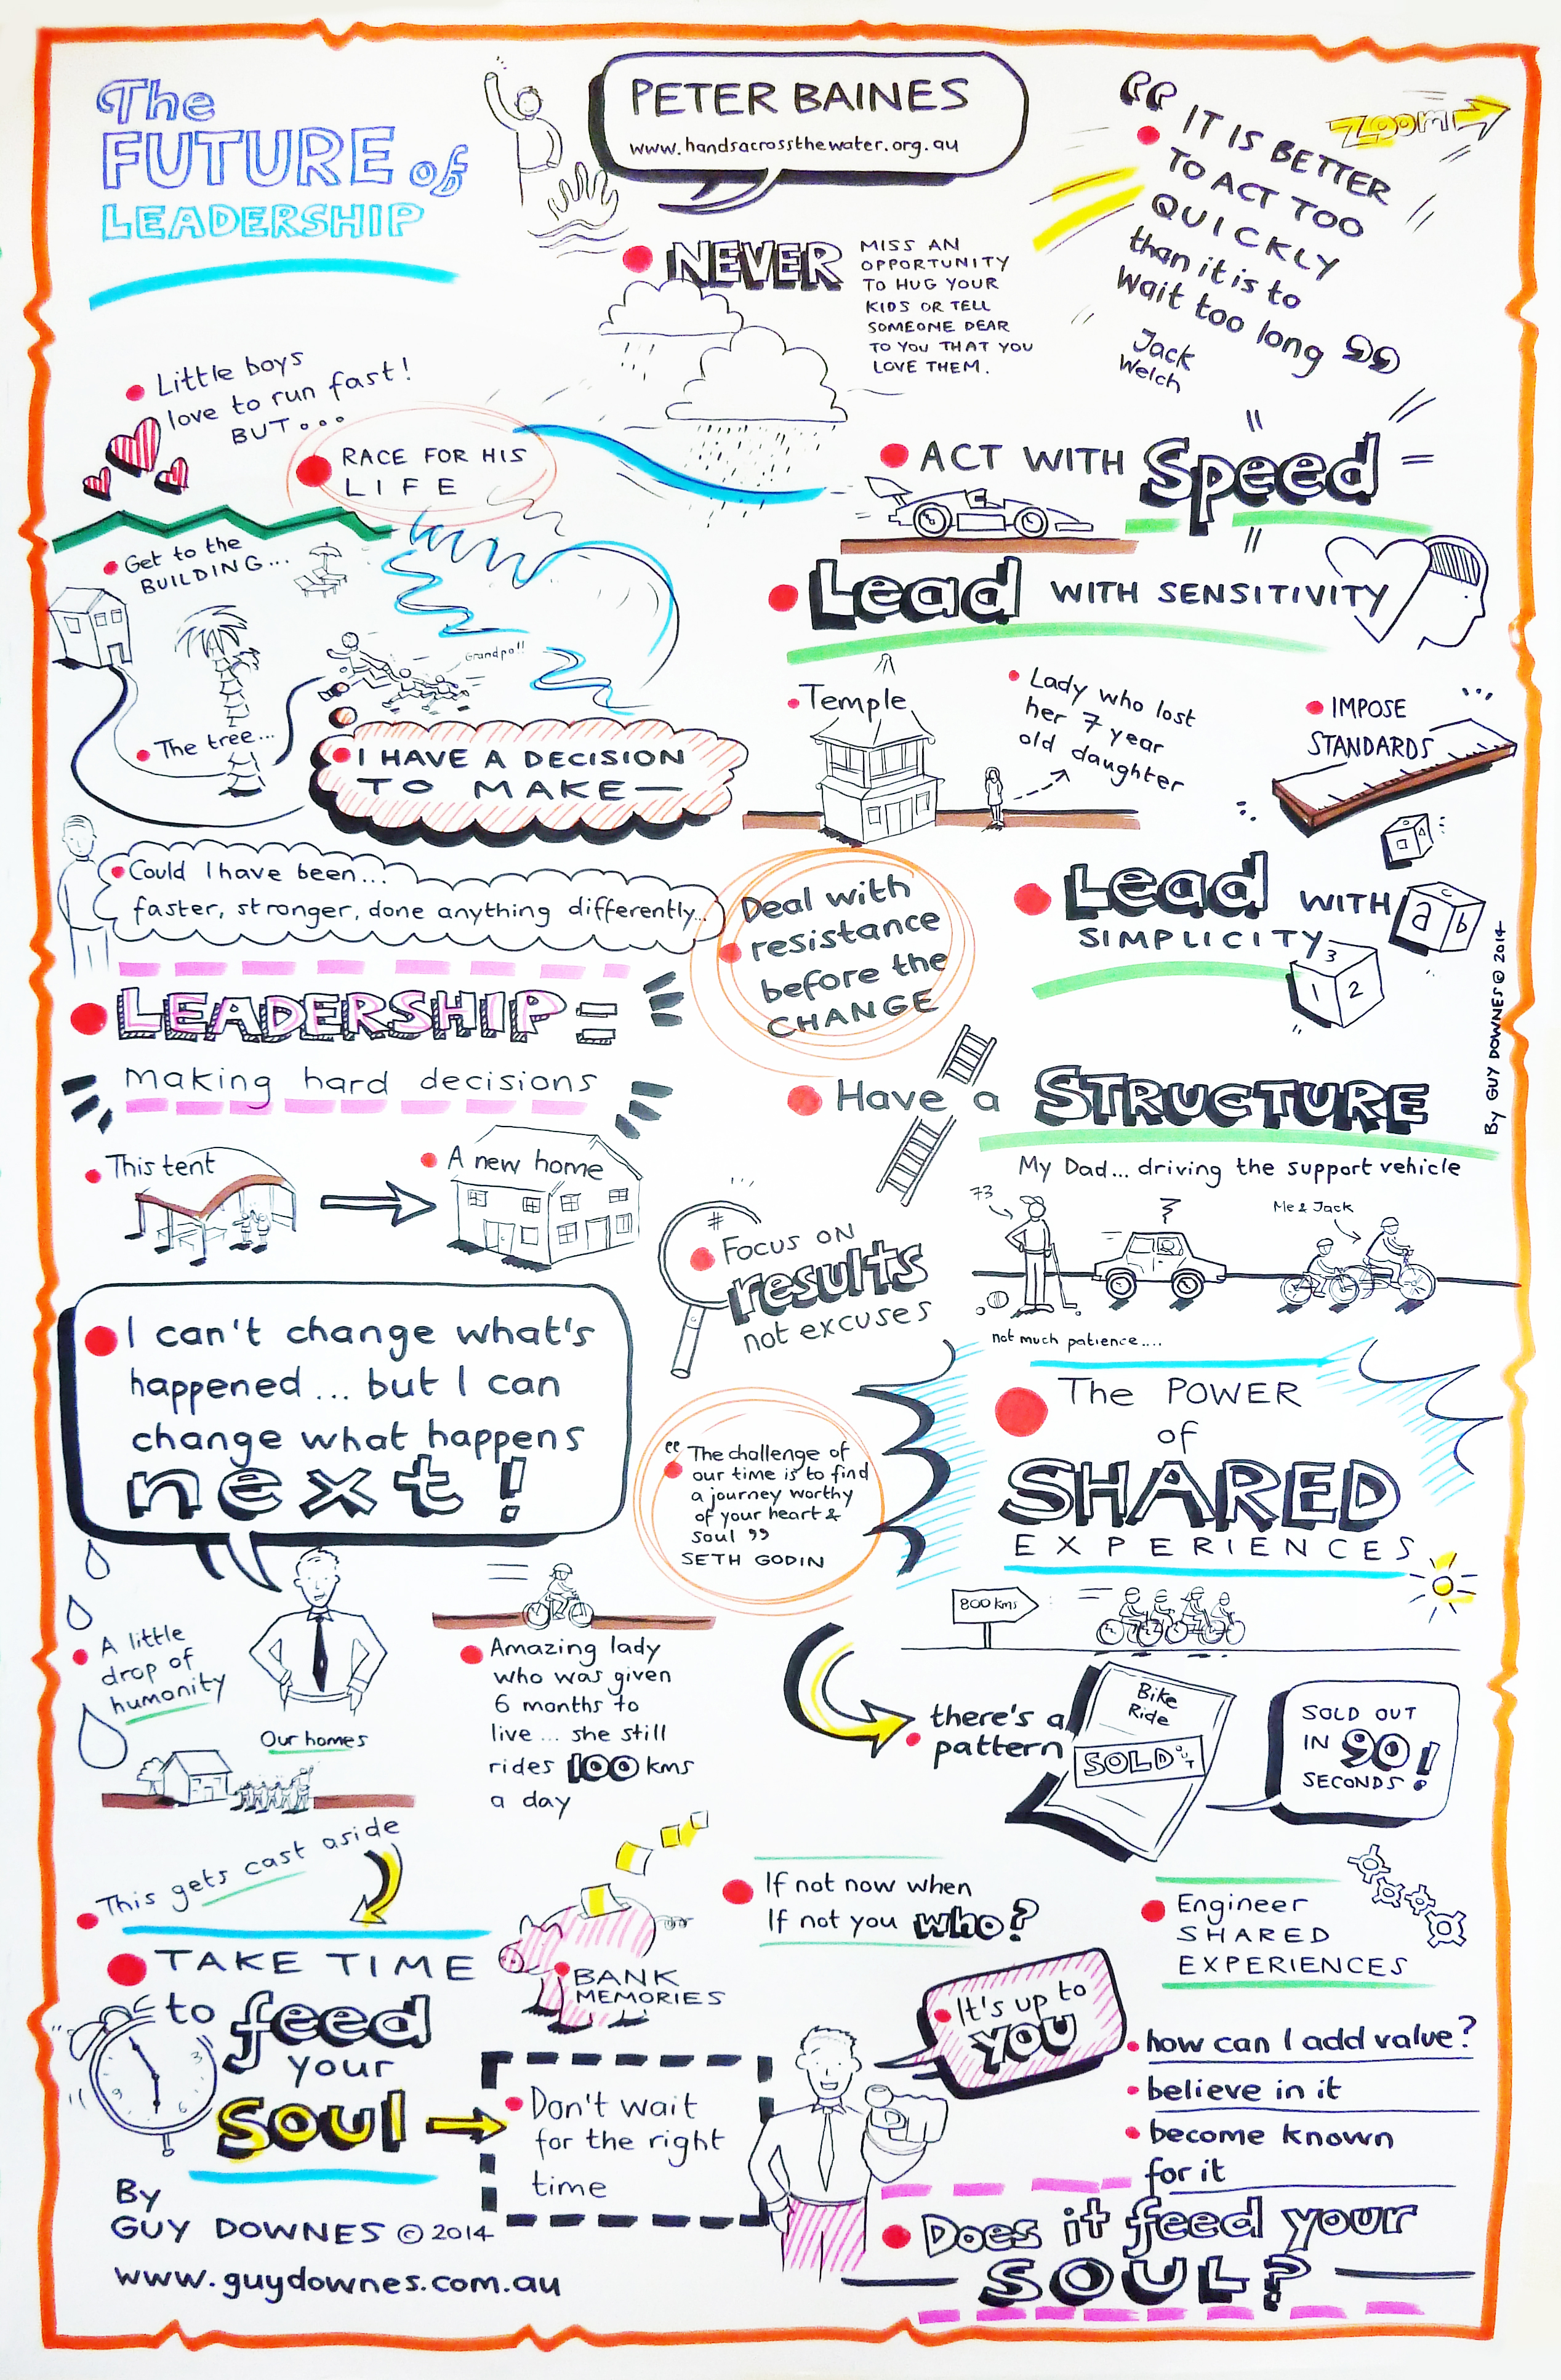 The
FUTURE of
LEADERSHIP
PETER BAINES
www.handsacrossthewater.org.au
NEVER
MISS AN
OPPORTUNITY
TO HUG YOUR
KIDS OR TELL
SOMEONE DEAR
TO YOU THAT YOU
LOVE THEM.
“IT IS BETTER
TO ACT TOO
QUICKLY
than it is to
Wait too long”
Jack
Welch
ZOOM
Little boys
love to run fast!
BUT...
RACE FOR HIS
LIFE
Get to the
BUILDING...
Grandpa!!
The tree...
I HAVE A DECISION
TO MAKE—
Could I have been...
faster, stronger, done anything differently...
LEADERSHIP =
making hard decisions
This tent
A new home
I can't change what's
happened... but I can
change what happens
next!
A little
drop of
humanity
Our homes
Amazing lady
who was given
6 months to
live... she still
rides 100 kms
a day
This gets cast aside
TAKE TIME
to feed
your
SOUL
By
GUY DOWNES © 2014
www.guydownes.com.au
BANK
MEMORIES
Don't wait
for the right
time
ACT WITH Speed
Lead WITH SENSITIVITY
Temple
Lady who lost
her 7 year
old daughter
IMPOSE
STANDARDS
Deal with
resistance
before the
CHANGE
Lead WITH
SIMPLICITY
a b c
1 2 3
By GUY DOWNES © 2014
Have a STRUCTURE
My Dad... driving the support vehicle
73
Me & Jack
not much patience....
#
FOCUS ON
results
not excuses
“The challenge of
our time is to find
a journey worthy
of your heart &
soul”
SETH GODIN
The POWER
of
SHARED
EXPERIENCES
800 kms
there's a
pattern
Bike
Ride
SOLD OUT
SOLD OUT
IN 90!
SECONDS
If not now when
If not you who?
Engineer
SHARED
EXPERIENCES
It's up to
YOU
how can I add value?
believe in it
become known
for it
Does it feed your
SOUL?